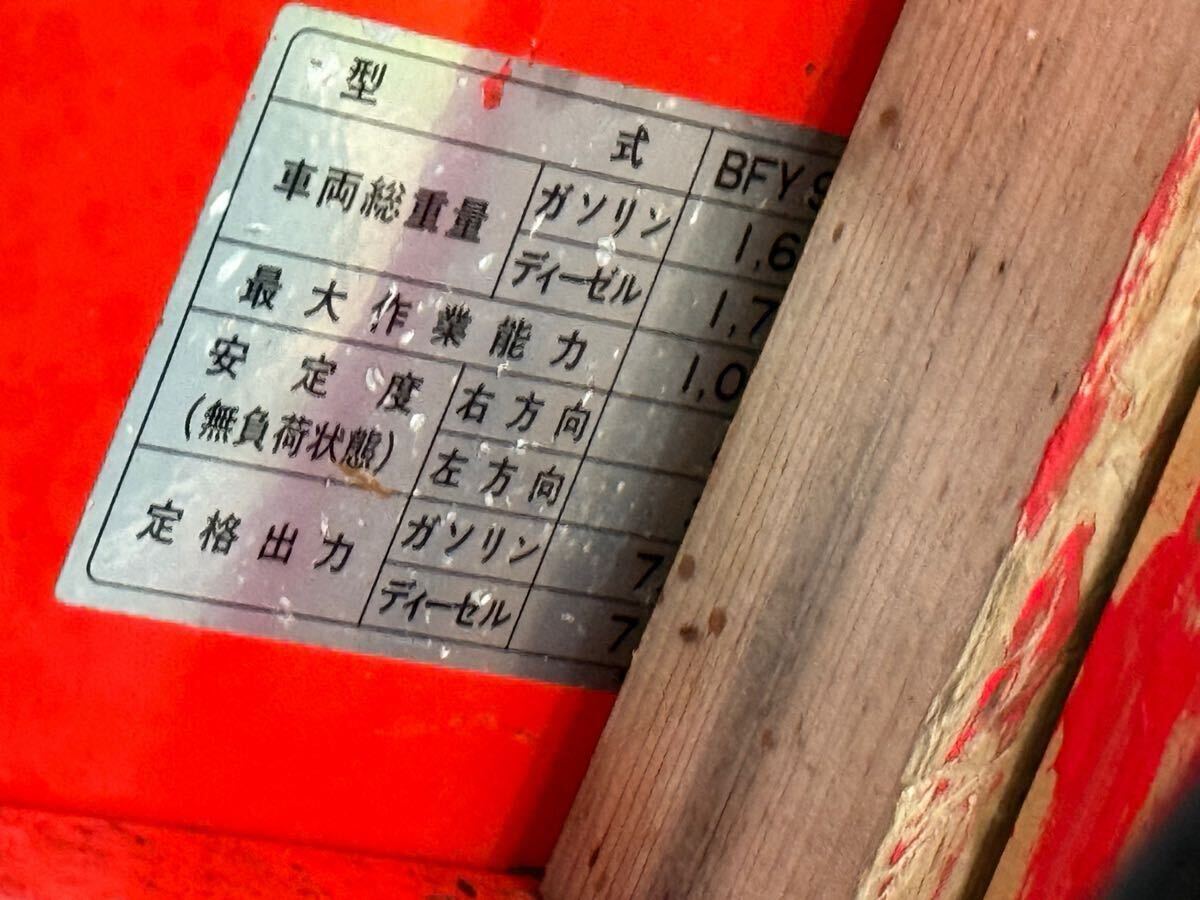 型 式 BFY
車両総重量 ガソリン 1,6
ディーゼル 1,7
最大作業能力 1,0
安定度 右方向
(無負荷状態) 左方向
定格出力 ガソリン 7
ディーゼル 7